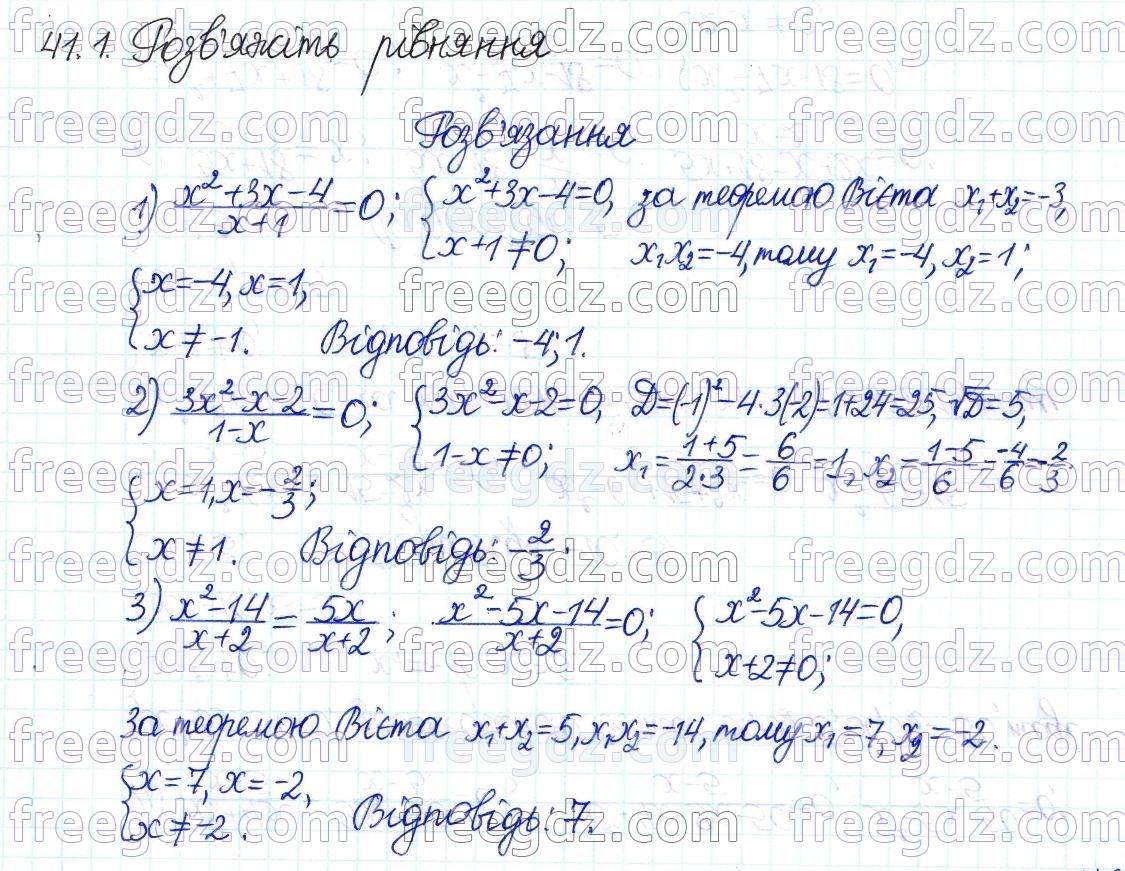 41.1. Розв'яжіть рівняння
Розв'язання
1) (x²+3x-4)/(x+1)=0; { x²+3x-4=0, за теоремою Вієта x₁+x₂=-3,
x+1≠0; x₁x₂=-4, тому x₁=-4, x₂=1;
{ x=-4, x=1,
x≠-1. Відповідь: -4; 1.
2) (3x²-x-2)/(1-x)=0; { 3x²-x-2=0, D=(-1)²-4·3(-2)=1+24=25, √D=5,
1-x≠0; x₁=(1+5)/(2·3)=6/6=1, x₂=(1-5)/6=-4/6=-2/3
{ x=1, x=-2/3;
x≠1. Відповідь: -2/3.
3) (x²-14)/(x+2)=5x/(x+2); (x²-5x-14)/(x+2)=0; { x²-5x-14=0,
x+2≠0;
За теоремою Вієта x₁+x₂=5, x₁x₂=-14, тому x₁=7, x₂=-2.
{ x=7, x=-2,
x≠-2. Відповідь: 7.
freegdz.com